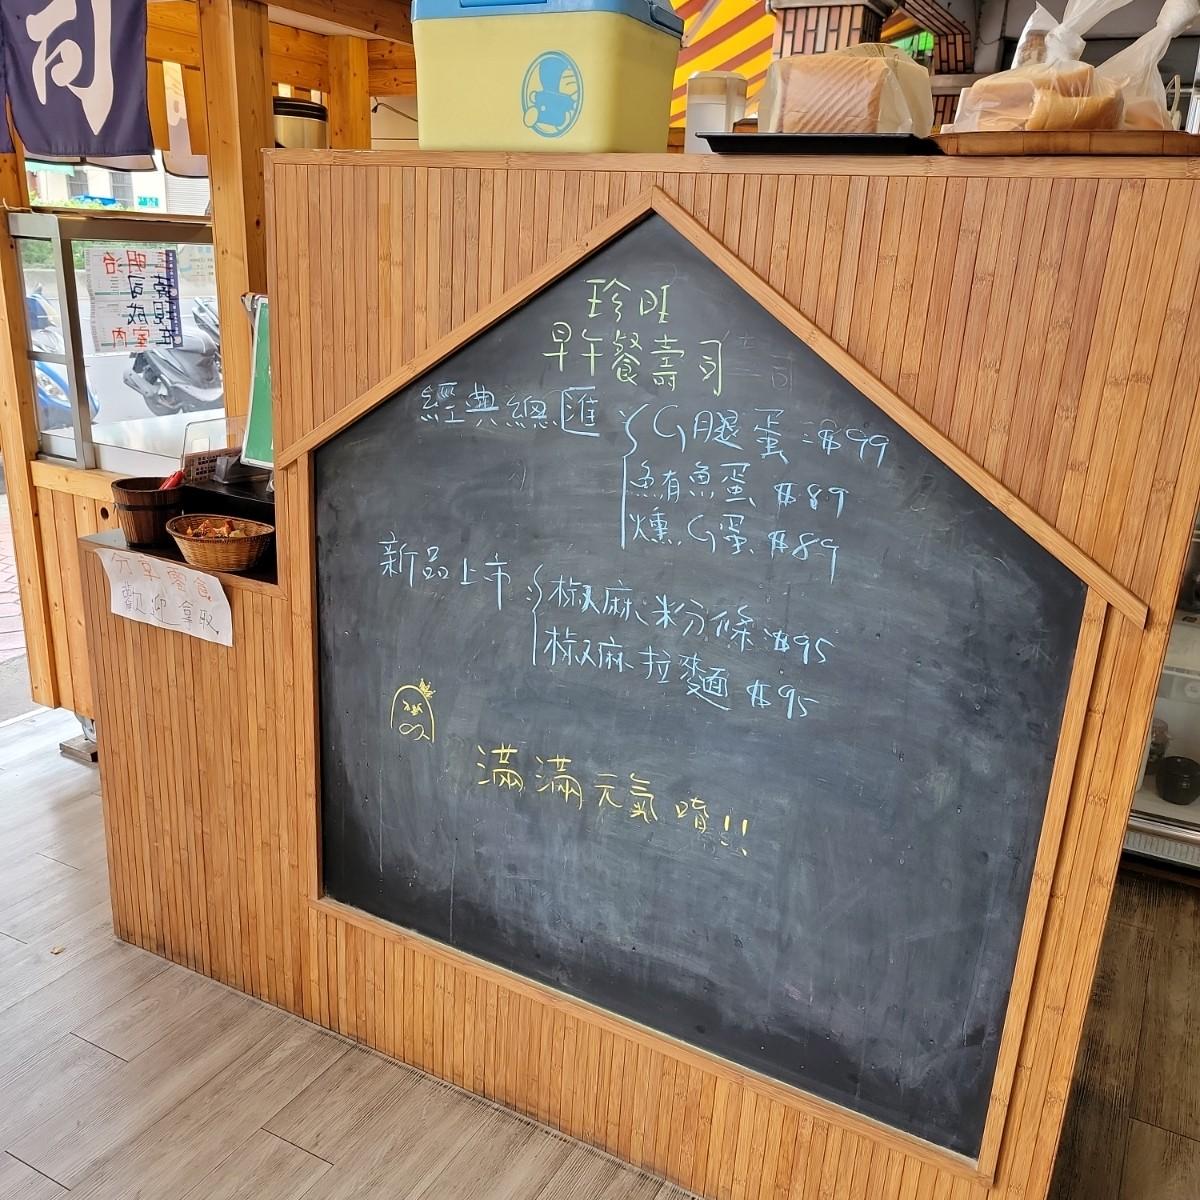 司
三明治
壽司
現成
在室內
珍旺
早午餐壽司
經典總匯 G腿蛋:$99
鮪魚蛋 $89
燻G蛋 $89
新品上市 椒麻米粉條 $95
椒麻拉麵 $95
滿滿元氣唷!!
分享零食
歡迎拿取